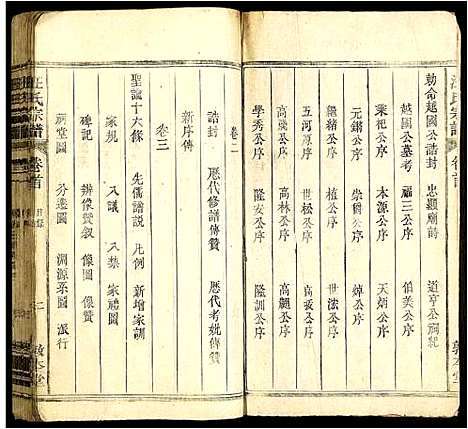 汪氏宗譜 卷首
勅命越國公誥封 忠顯廟詩 道亨公祠紀
越國公墓考 福三公序 伯美公序
秉祀公序 本源公序 天炳公序
元鏘公序 崇儒公序 焯公序
繼緒公序 植公序 世法公序
五河源公序 世松公序 高板公序
高幾公序 高林公序 高麒公序
學秀公序 隆安公序 隆訓公序
敦本堂
卷二
誥封 歷代修譜傳贊 歷代考妣傳贊
新序傳
卷三
聖諭十六條 先儒譜說 凡例 新增家訓
家規 八議 八禁 家禮圖
碑記 辨像贊叙 像圖 像贊
祠堂圖 分遷圖 淵源系圖 派行
汪氏宗譜 卷首 目錄 二 敦本堂